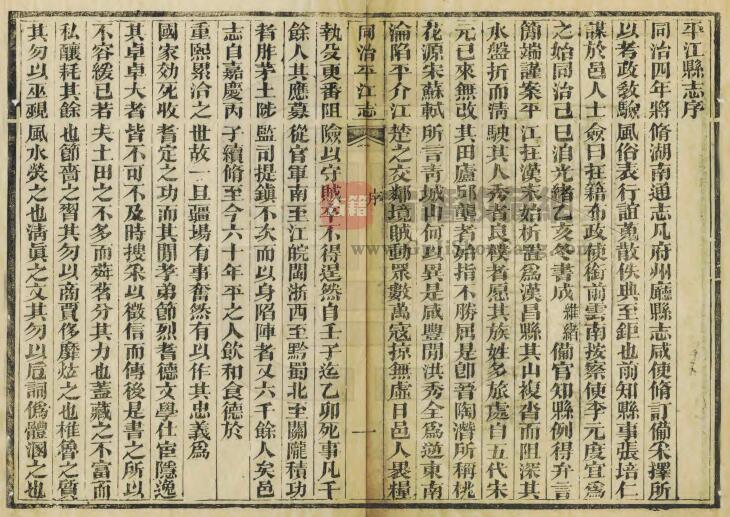 平江縣志序
同治四年將脩湖南通志凡府州廳縣志咸使脩訂備采擇所
以考政教驗風俗表行誼萬散佚典至鉅也前知縣事張培仁
謀於邑人士僉曰在籍布政使銜前雲南按察使李元度宜為
之始同治己巳洎光緒乙亥冬書成維緒備官知縣例得弁言
簡端謹案平江在漢末始析置為漢昌縣其山複沓而阻深其
水盤折而清駛其人秀者良樸者愿其族姓多旅處自五代宋
元已來無改其田廬邱壟者始指不勝屈是卽晉陶潛所稱桃
花源宋蘇軾所言青城山何以異是咸豐閒洪秀全為逆東南
淪陷平介江楚之交鄰境賊動眾數萬寇掠無虛日邑人畀糧
同治平江志
序
一
執殳更番阻險以守賊卒不得逞然自壬子迄乙卯死事凡千
餘人其應募從官軍南至江皖閩浙西至黔蜀北至關隴積功
者胙茅土陟監司提鎮不次而以身陷陣者又六千餘人矣邑
志自嘉慶丙子續脩至今六十年平之人飲和食德於
重熙累洽之世故一旦疆場有事奮然有以作其忠義為
國家効死收耆定之功而其閒孝弟節烈耆德文學仕宦隱逸
其卓卓大者皆不可不及時搜采以徵信而傳後是書之所以
不容緩已若夫土田之不多而蕣茗分其力也蓋藏之不富而
私釀耗其餘也節嗇之習其勿以商賈侈靡炫之也椎魯之質
其勿以巫覡風水熒之也清眞之文其勿以卮詞僞體溷之也